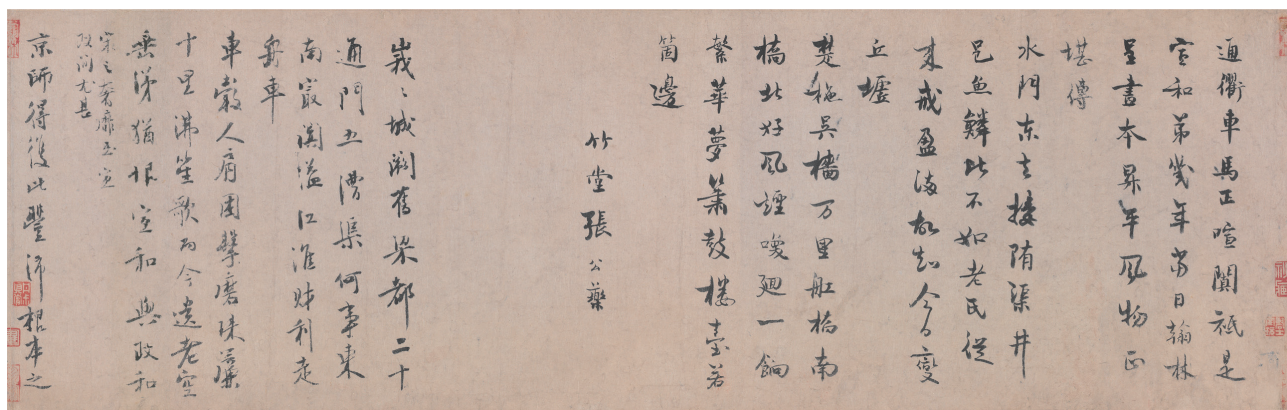 通衢車馬正喧闐祗是
宣和第幾年當日翰林
呈畫本昇平風物正
堪傳
水門東去接隋渠井
邑魚鱗比不如老氏從
來戒盈滿故知今日變
丘墟
楚柂吳檣万里舡橋南
橋北好風煙喚廻一餉
繁華夢簫鼓樓臺若
箇邊
竹堂張公藥
峩〻城闕舊梁都二十
通門五漕渠何事東
南最闐溢江淮財利走
舟車
車轂人肩困擊磨珠簾
十里沸笙歌而今遺老空
垂涕猶恨宣和與政和
宋之奢靡至宣
政間尤甚
京師得復比豐沛根本之